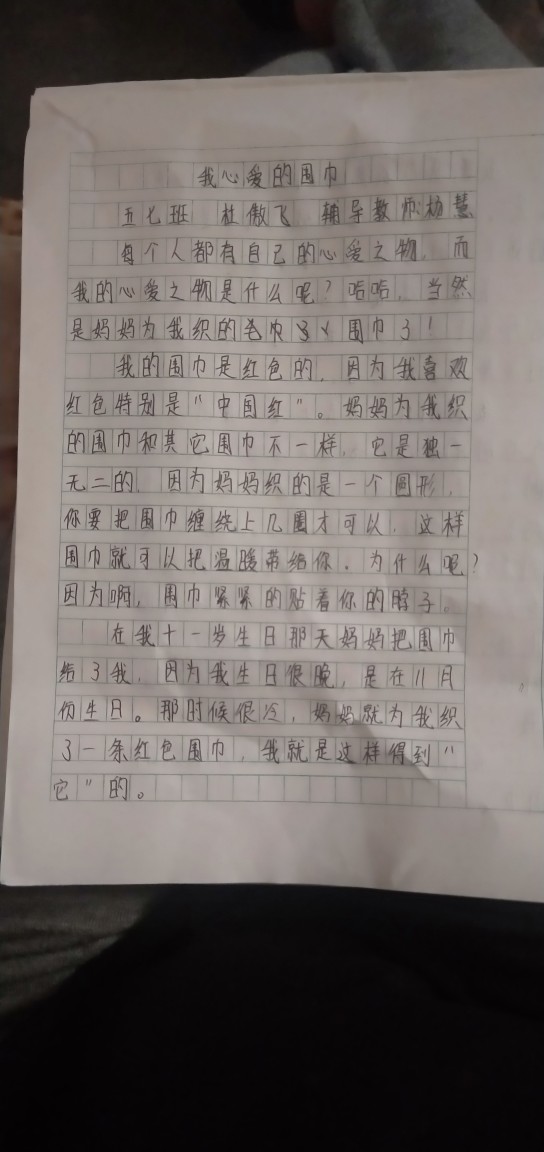 我心爱的围巾
五七班 杜傲飞 辅导教师:杨慧
每个人都有自己的心爱之物,而
我的心爱之物是什么呢?哈哈,当然
是妈妈为我织的毛巾 围巾了!
我的围巾是红色的,因为我喜欢
红色特别是“中国红”。妈妈为我织
的围巾和其它围巾不一样,它是独一
无二的,因为妈妈织的是一个圆形,
你要把围巾缠绕上几圈才可以,这样
围巾就可以把温暖带给你。为什么呢?
因为啊,围巾紧紧的贴着你的脖子。
在我十一岁生日那天妈妈把围巾
给了我,因为我生日很晚,是在11月
份生日。那时候很冷,妈妈就为我织
了一条红色围巾,我就是这样得到“
它”的。